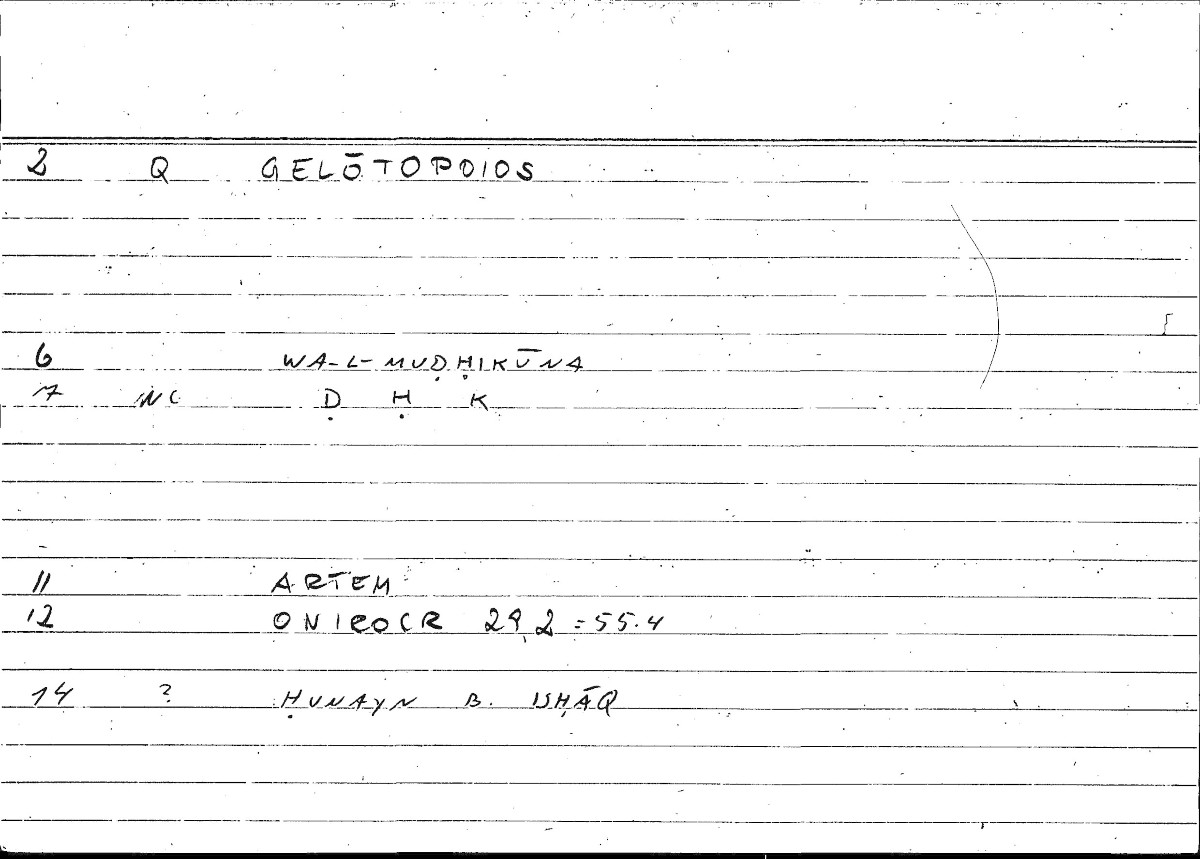 2 Q GELŌTOPOIOS
6 WA-L-MUḌḤIKŪNA
7 INC Ḍ Ḥ K
11 ARTEM
12 ONIROCR 29,2 = 55.4
14 ? ḤUNAYN B. ISḤĀQ